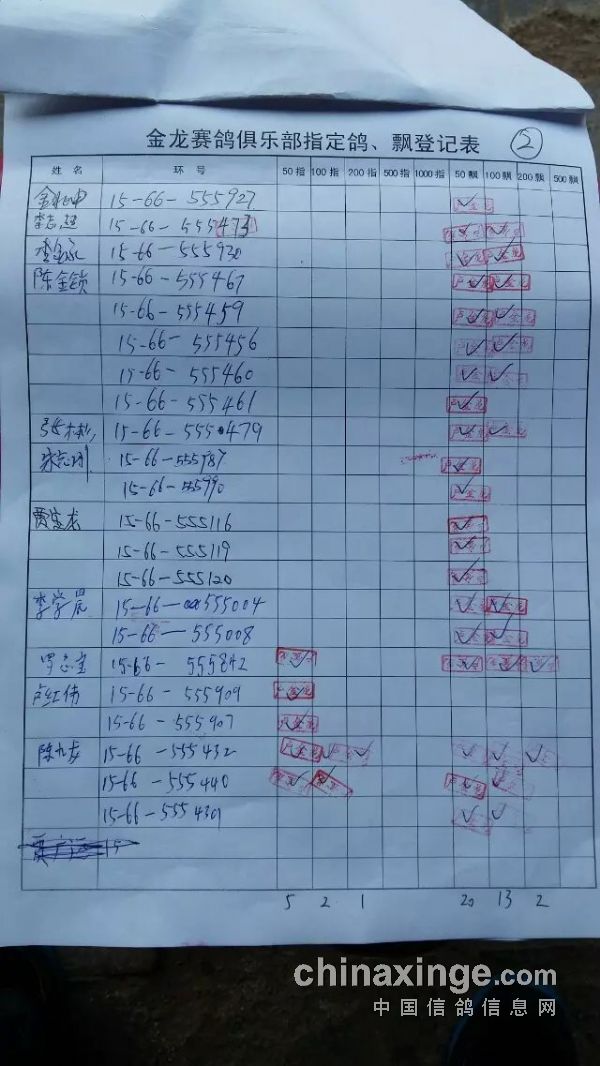 金龙赛鸽俱乐部指定鸽、飘登记表 ②
姓名 环号 50指 100指 200指 500指 1000指 50飘 100飘 200飘 500飘
15-66-555927 ✓
李志超 15-66-555473 ✓ ✓
15-66-555930 ✓ ✓
陈金锁 15-66-555467 ✓ ✓
15-66-555459 ✓ ✓
15-66-555456 ✓ ✓
15-66-555460 ✓ ✓
15-66-555461 ✓
15-66-555479 ✓ ✓
15-66-555787 ✓
15-66-555790 ✓
15-66-555116 ✓
15-66-555119 ✓
15-66-555120 ✓
李学晨 15-66-555004 ✓ ✓
15-66-555008 ✓ ✓
罗志宝 15-66-555842 ✓ ✓ ✓ ✓
卢红伟 15-66-555909 ✓
15-66-555907 ✓
陈九友 15-66-555432 ✓ ✓ ✓ ✓ ✓ ✓
15-66-555440 ✓ ✓ ✓ ✓
15-66-555430 ✓ ✓
5 2 1 20 13 2
chinaxinge.com
中国信鸽信息网